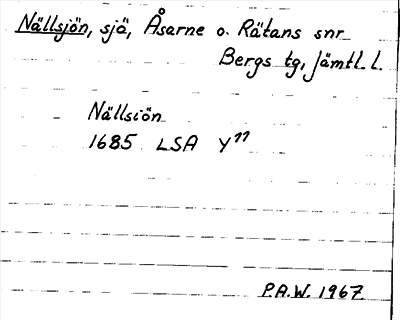 Nällsjön, sjö, Åsarne o. Rätans snr
Bergs tg, Jämtl. l.
Nällsiön
1685 LSA Y¹¹
P.A.W. 1967